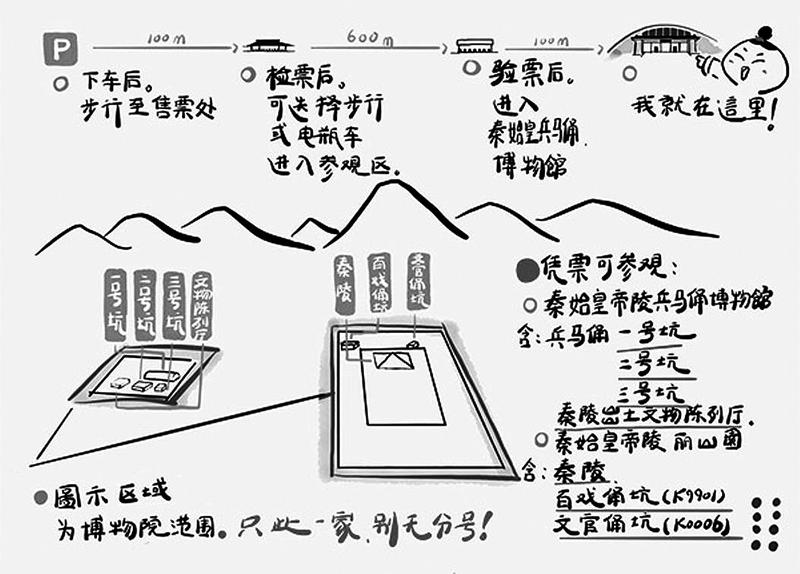 P
100m
600m
100m
下车后。
步行至售票处
检票后。
可选择步行
或电瓶车
进入参观区。
验票后。
进入
秦始皇兵马俑
博物館
我就在這里!
一号坑
二号坑
三号坑
文物陈列厅
秦陵
百戏俑坑
文官俑坑
凭票可参观:
秦始皇帝陵兵马俑博物館
含:兵马俑 一号坑
二号坑
三号坑
秦陵出土文物陈列厅.
秦始皇帝陵 丽山園
含:秦陵
百戏俑坑(K9901)
文官俑坑(K0006)
圖示区域
为博物院范围。只此一家,别无分号!